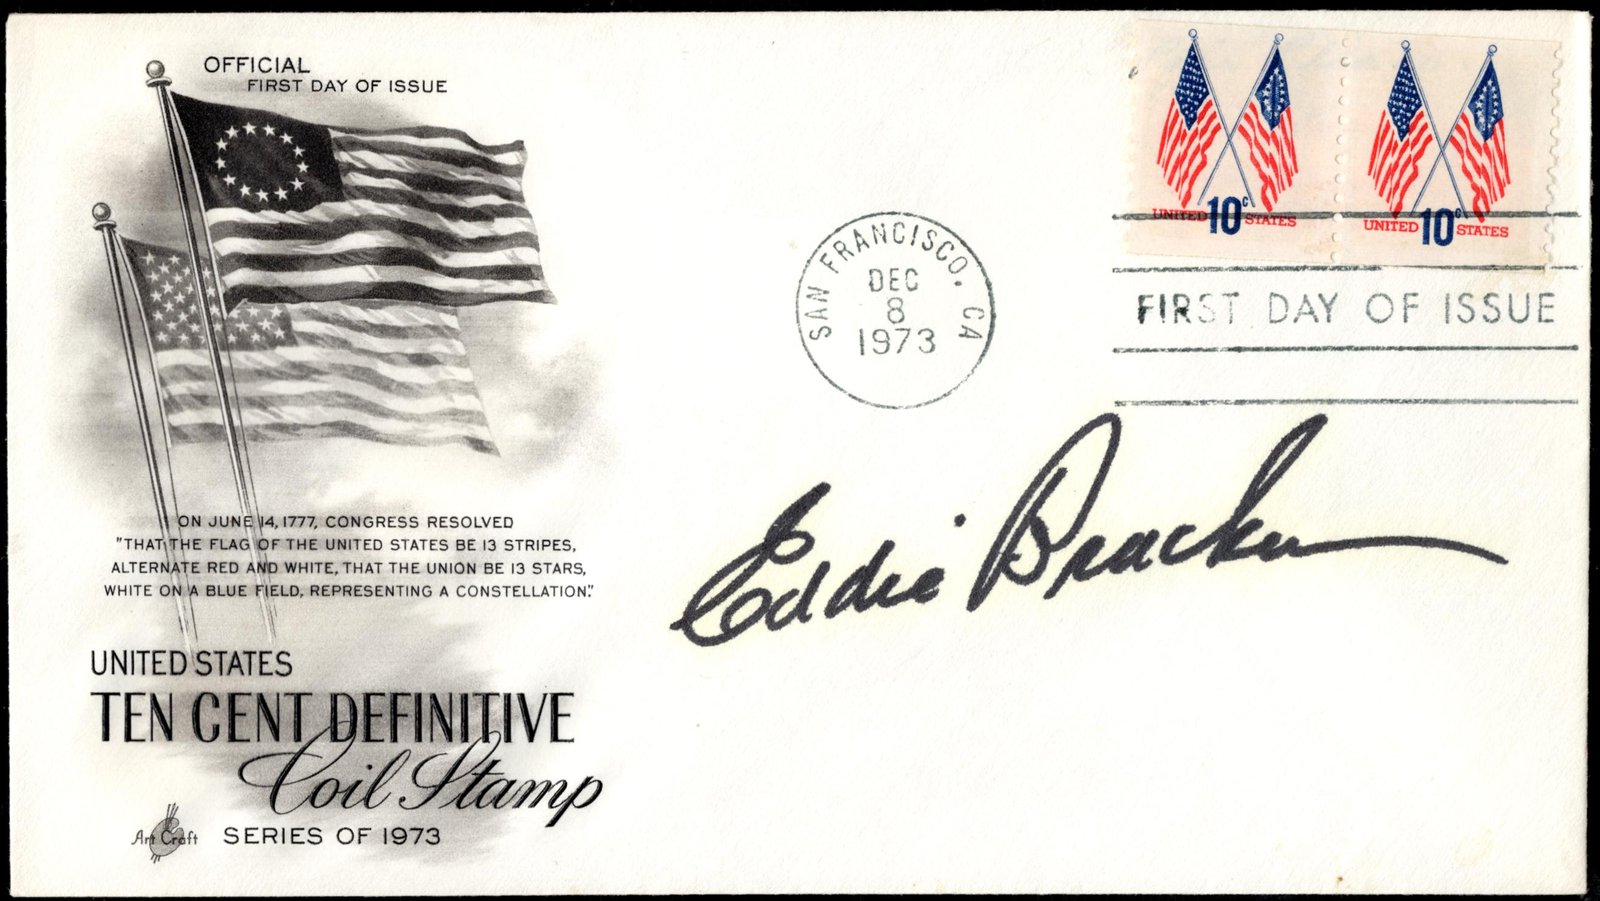 OFFICIAL
FIRST DAY OF ISSUE
UNITED 10c STATES
UNITED 10c STATES
SAN FRANCISCO, CA
DEC
8
1973
FIRST DAY OF ISSUE
Eddie Bracken
ON JUNE 14, 1777, CONGRESS RESOLVED
"THAT THE FLAG OF THE UNITED STATES BE 13 STRIPES,
ALTERNATE RED AND WHITE, THAT THE UNION BE 13 STARS,
WHITE ON A BLUE FIELD, REPRESENTING A CONSTELLATION."
UNITED STATES
TEN CENT DEFINITIVE
Coil Stamp
Art Craft
SERIES OF 1973